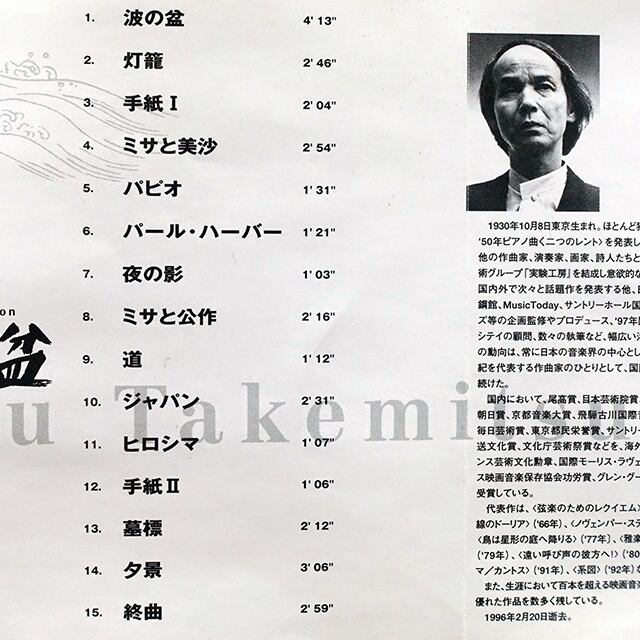 1. 波の盆 4' 13"
2. 灯籠 2' 46"
3. 手紙 I 2' 04"
4. ミサと美沙 2' 54"
5. パピオ 1' 31"
6. パール・ハーバー 1' 21"
7. 夜の影 1' 03"
8. ミサと公作 2' 16"
9. 道 1' 12"
10. ジャパン 2' 31"
11. ヒロシマ 1' 07"
12. 手紙 II 1' 06"
13. 墓標 2' 12"
14. 夕景 3' 06"
15. 終曲 2' 59"
on
盆
u Takemitsu
1930年10月8日東京生まれ。ほとんど
'50年ピアノ曲〈二つのレント〉を発表し
他の作曲家、演奏家、画家、詩人たちと
術グループ「実験工房」を結成し意欲的な
国内外で次々と話題作を発表する他、
鋼館、MusicToday、サントリーホール国
ズ等の企画監修やプロデュース、'97年
シティの顧問、数々の執筆など、幅広い
の動向は、常に日本の音楽界の中心とし
紀を代表する作曲家のひとりとして、国
続けた。
国内において、尾高賞、日本芸術院賞、
朝日賞、京都音楽大賞、飛騨古川国際
毎日芸術賞、東京都民栄誉賞、サントリー
送文化賞、文化庁芸術祭賞などを、海外
ンス芸術文化勲章、国際モーリス・ラヴェ
ス映画音楽保存協会功労賞、グレン・グー
受賞している。
代表作は、〈弦楽のためのレクイエム〉
線のドーリア〉('66年)、〈ノヴェンバー・ステ
〈鳥は星形の庭へ降りる〉('77年)、〈雅楽
('79年)、〈遠い呼び声の彼方へ!〉('80
マ/カントス〉('91年)、〈系図〉('92年)な
また、生涯において百本を超える映画音楽
優れた作品を数多く残している。
1996年2月20日逝去。